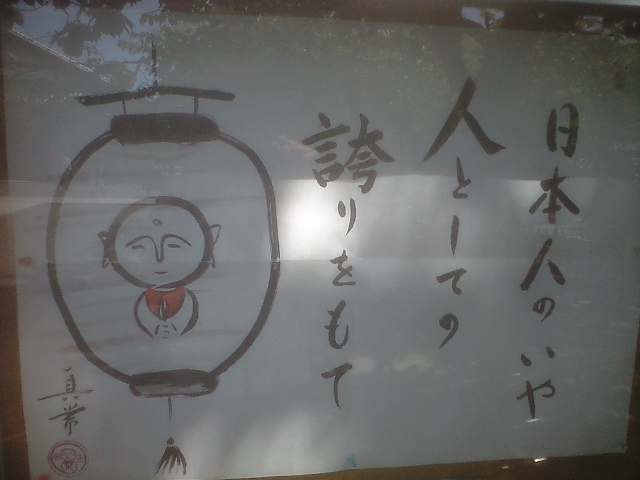 日本人のいや
人としての
誇りをもて
真常